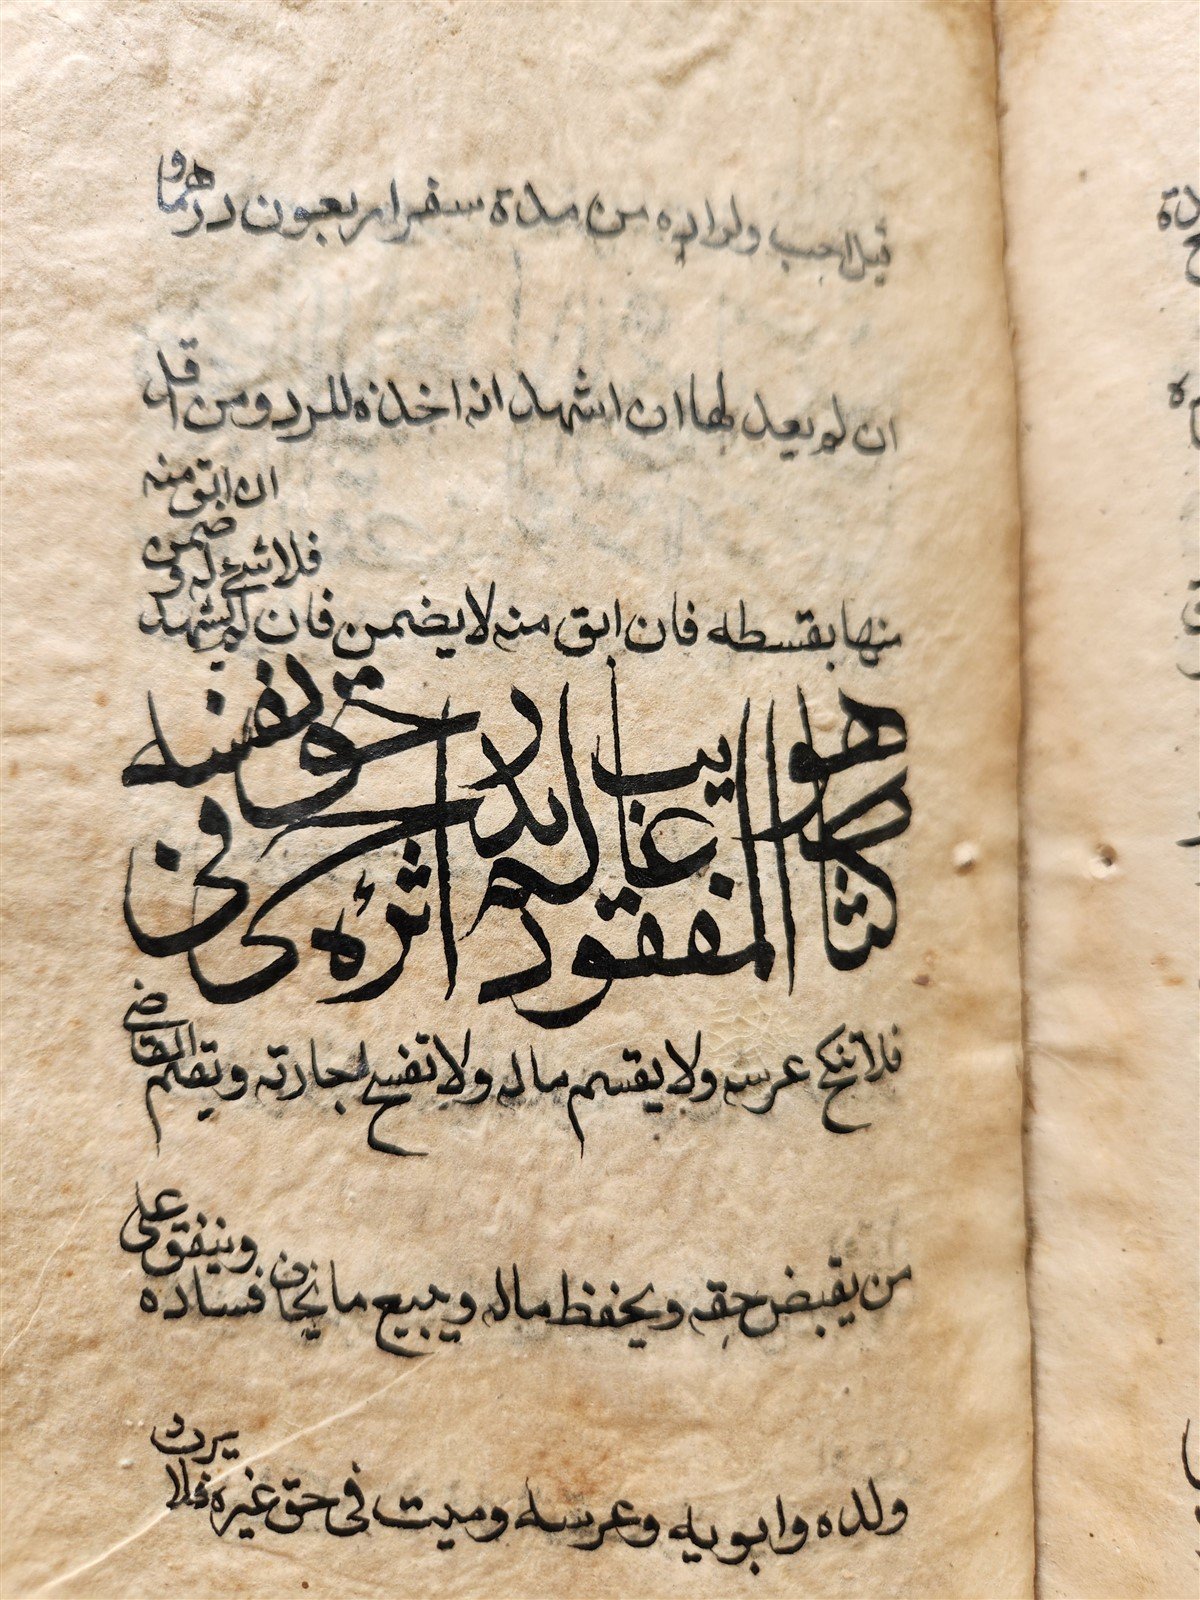 قيل احب ولراده من مدة سفر اربعون درهما و
ان لم يعد لها ان اشهد انه اخذه للرد ومن اقل
منها بقسطه فان ابق منه لا يضمن فان لم يشهد
فلا شئ له و
ضمن
ان ابق منه
كتاب المفقود
هو غايب لم يدر اثره حى فى حق نفسه
فلا تنكح عرسه ولا يقسم ماله ولا تفسخ اجارته ويقيم القاضى
من يقبض حقه ويحفظ ماله ويبيع ما يخاف فساده وينفق على
ولده وابويه وعرسه وميت فى حق غيره فلا يرث